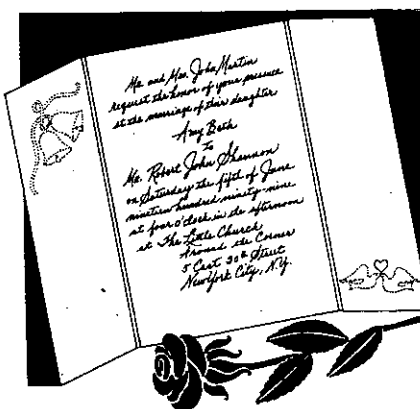 Mr. and Mrs. John Martin
request the honor of your presence
at the marriage of their daughter
Amy Beth
to
Mr. Robert John Shannon
on Saturday the fifth of June
nineteen hundred ninety-nine
at four o'clock in the afternoon
at The Little Church
Around the Corner
5 East 30th Street
New York City, N.Y.